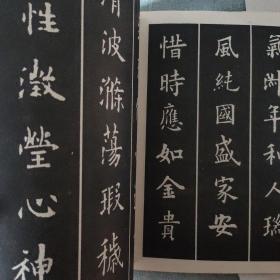 氣淑年和人瑞
風純國盛家安
惜時應如金貴
清波滌蕩瑕穢
性澂瑩心神